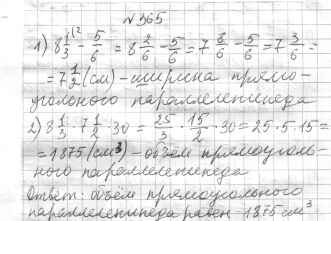 №365
1) 8 1/3 ^(2 - 5/6 = 8 2/6 - 5/6 = 7 8/6 - 5/6 = 7 3/6 =
= 7 1/2 (см) - ширина прямо-
угольного параллелепипеда
2) 8 1/3 · 7 1/2 · 30 = 25/3 · 15/2 · 30 = 25 · 5 · 15 =
= 1875 (см³) - объём прямоуголь-
ного параллелепипеда
Ответ: объём прямоугольного
параллелепипеда равен 1875 см³